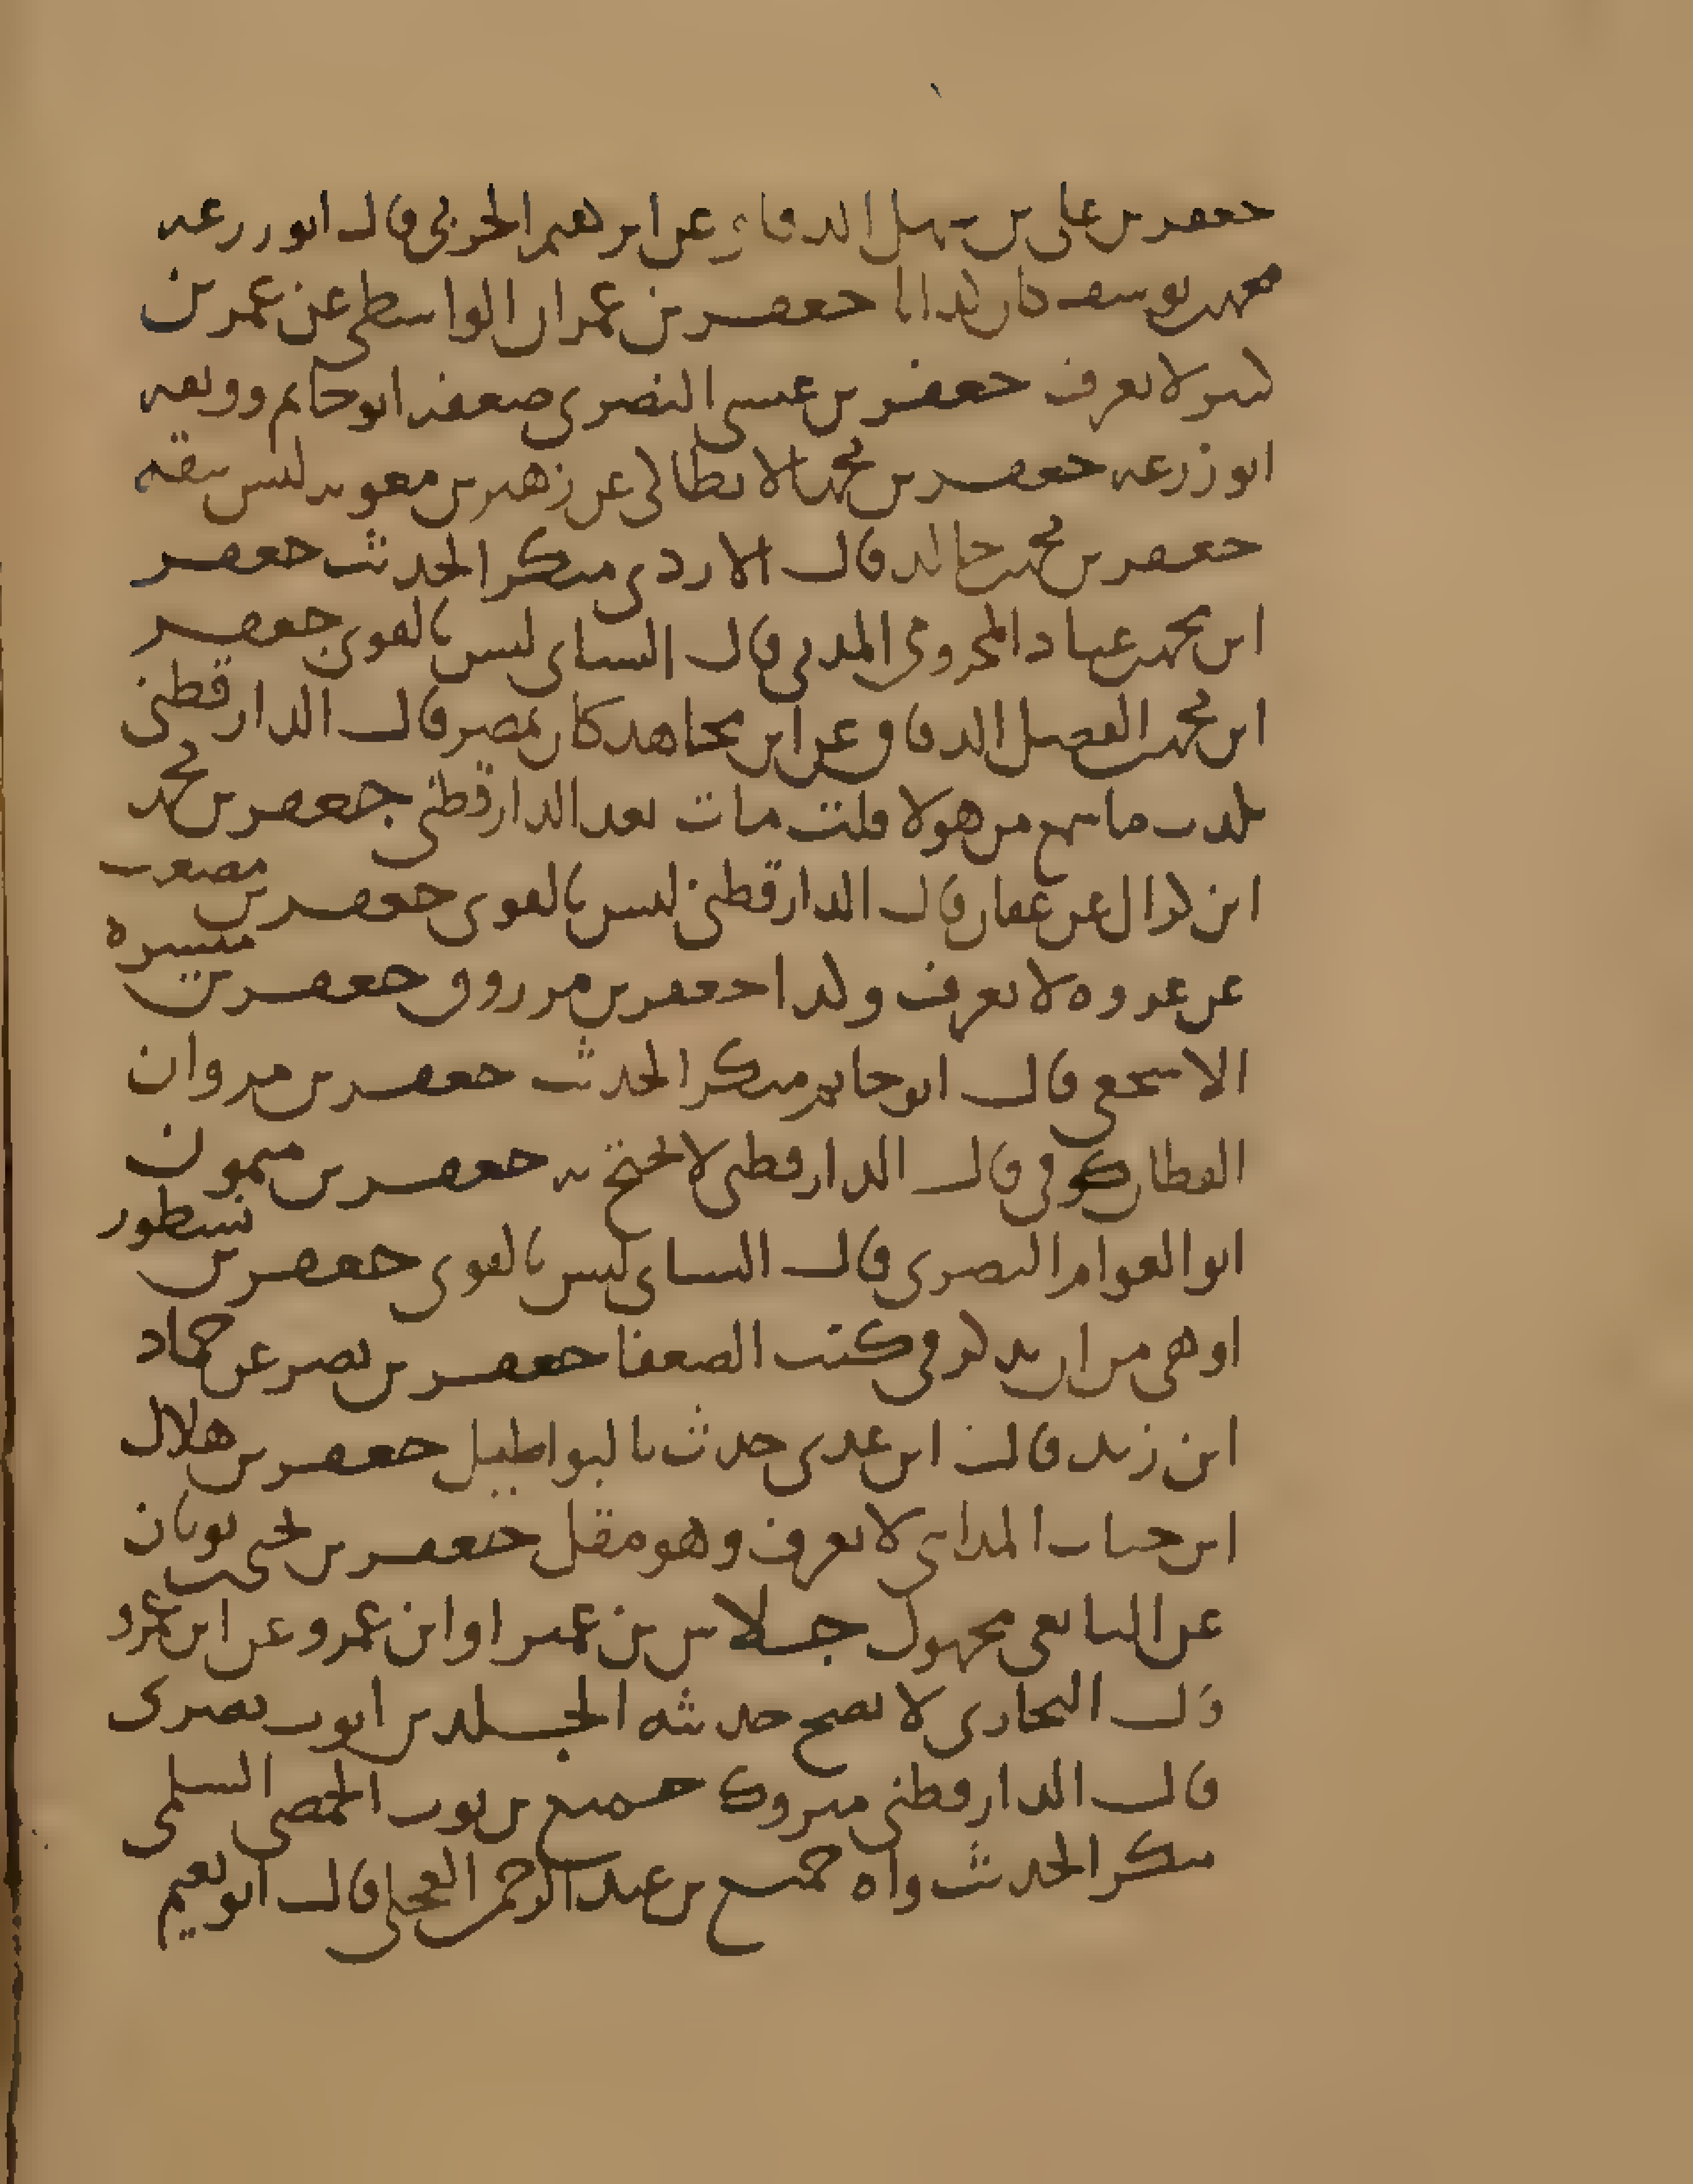 جعفر بن علي بن سهل الدقاق عن ابرهيم الحربي قال ابو زرعه
محمد بن يوسف كان كذابا جعفر بن عمران الواسطي عن عمر بن
كثير لا يعرف جعفر بن عيسى البصري ضعفه ابو حاتم ووثقه
ابو زرعه جعفر بن محمد الانطاكي عن زهير بن معويه ليس بثقه
جعفر بن محمد بن خالد قال الازدي منكر الحديث جعفر
ابن محمد بن عباد المخزومي المدني قال النساي ليس بالقوي جعفر
ابن محمد بن الفضل الدقاق عن ابن مجاهد كان بمصر قال الدارقطني
يكذب ما سمع من هولا قلت مات بعد الدارقطني جعفر بن محمد
ابن كزال عن عفان قال الدارقطني ليس بالقوي جعفر بن مصعب
عن عروه لا يعرف وكذا جعفر بن مرزوق جعفر بن ميسره
الاشجعي قال ابو حاتم منكر الحديث جعفر بن مروان
القطان كوفي قال الدارقطني لا يحتج به جعفر بن ميمون
ابو العوام البصري قال النساي ليس بالقوي جعفر بن نسطور
اوهى من ان يذكر في كتب الضعفا جعفر بن نصر عن حماد
ابن زيد قال ابن عدي حدث بالبواطيل جعفر بن هلال
ابن خباب المدايني لا يعرف وهو مقل جعفر بن يحيى بن ثوبان
عن التابعي مجهول جلاس بن عمير او ابن عمرو عن ابن عمرو
قال البخاري لا يصح حديثه الجلد بن ايوب بصري
قال الدارقطني متروك جميع بن ثوب الحمصي السلمي
منكر الحديث واه جميع بن عبد الرحمن العجلي قال ابو نعيم